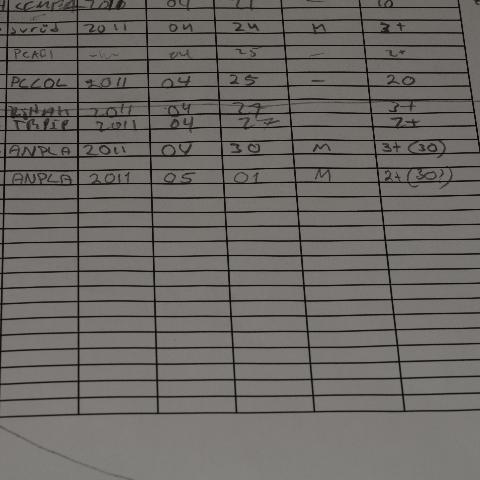 04 21 - 10
2011 04 24 M 3+
PCACI -"- 04 25 - 2+
PCCOL 2011 04 25 - 20
2011 04 27 3+
2011 04 27 2+
ANPLA 2011 04 30 M 3+ (30)
ANPLA 2011 05 01 M 2+ (30)